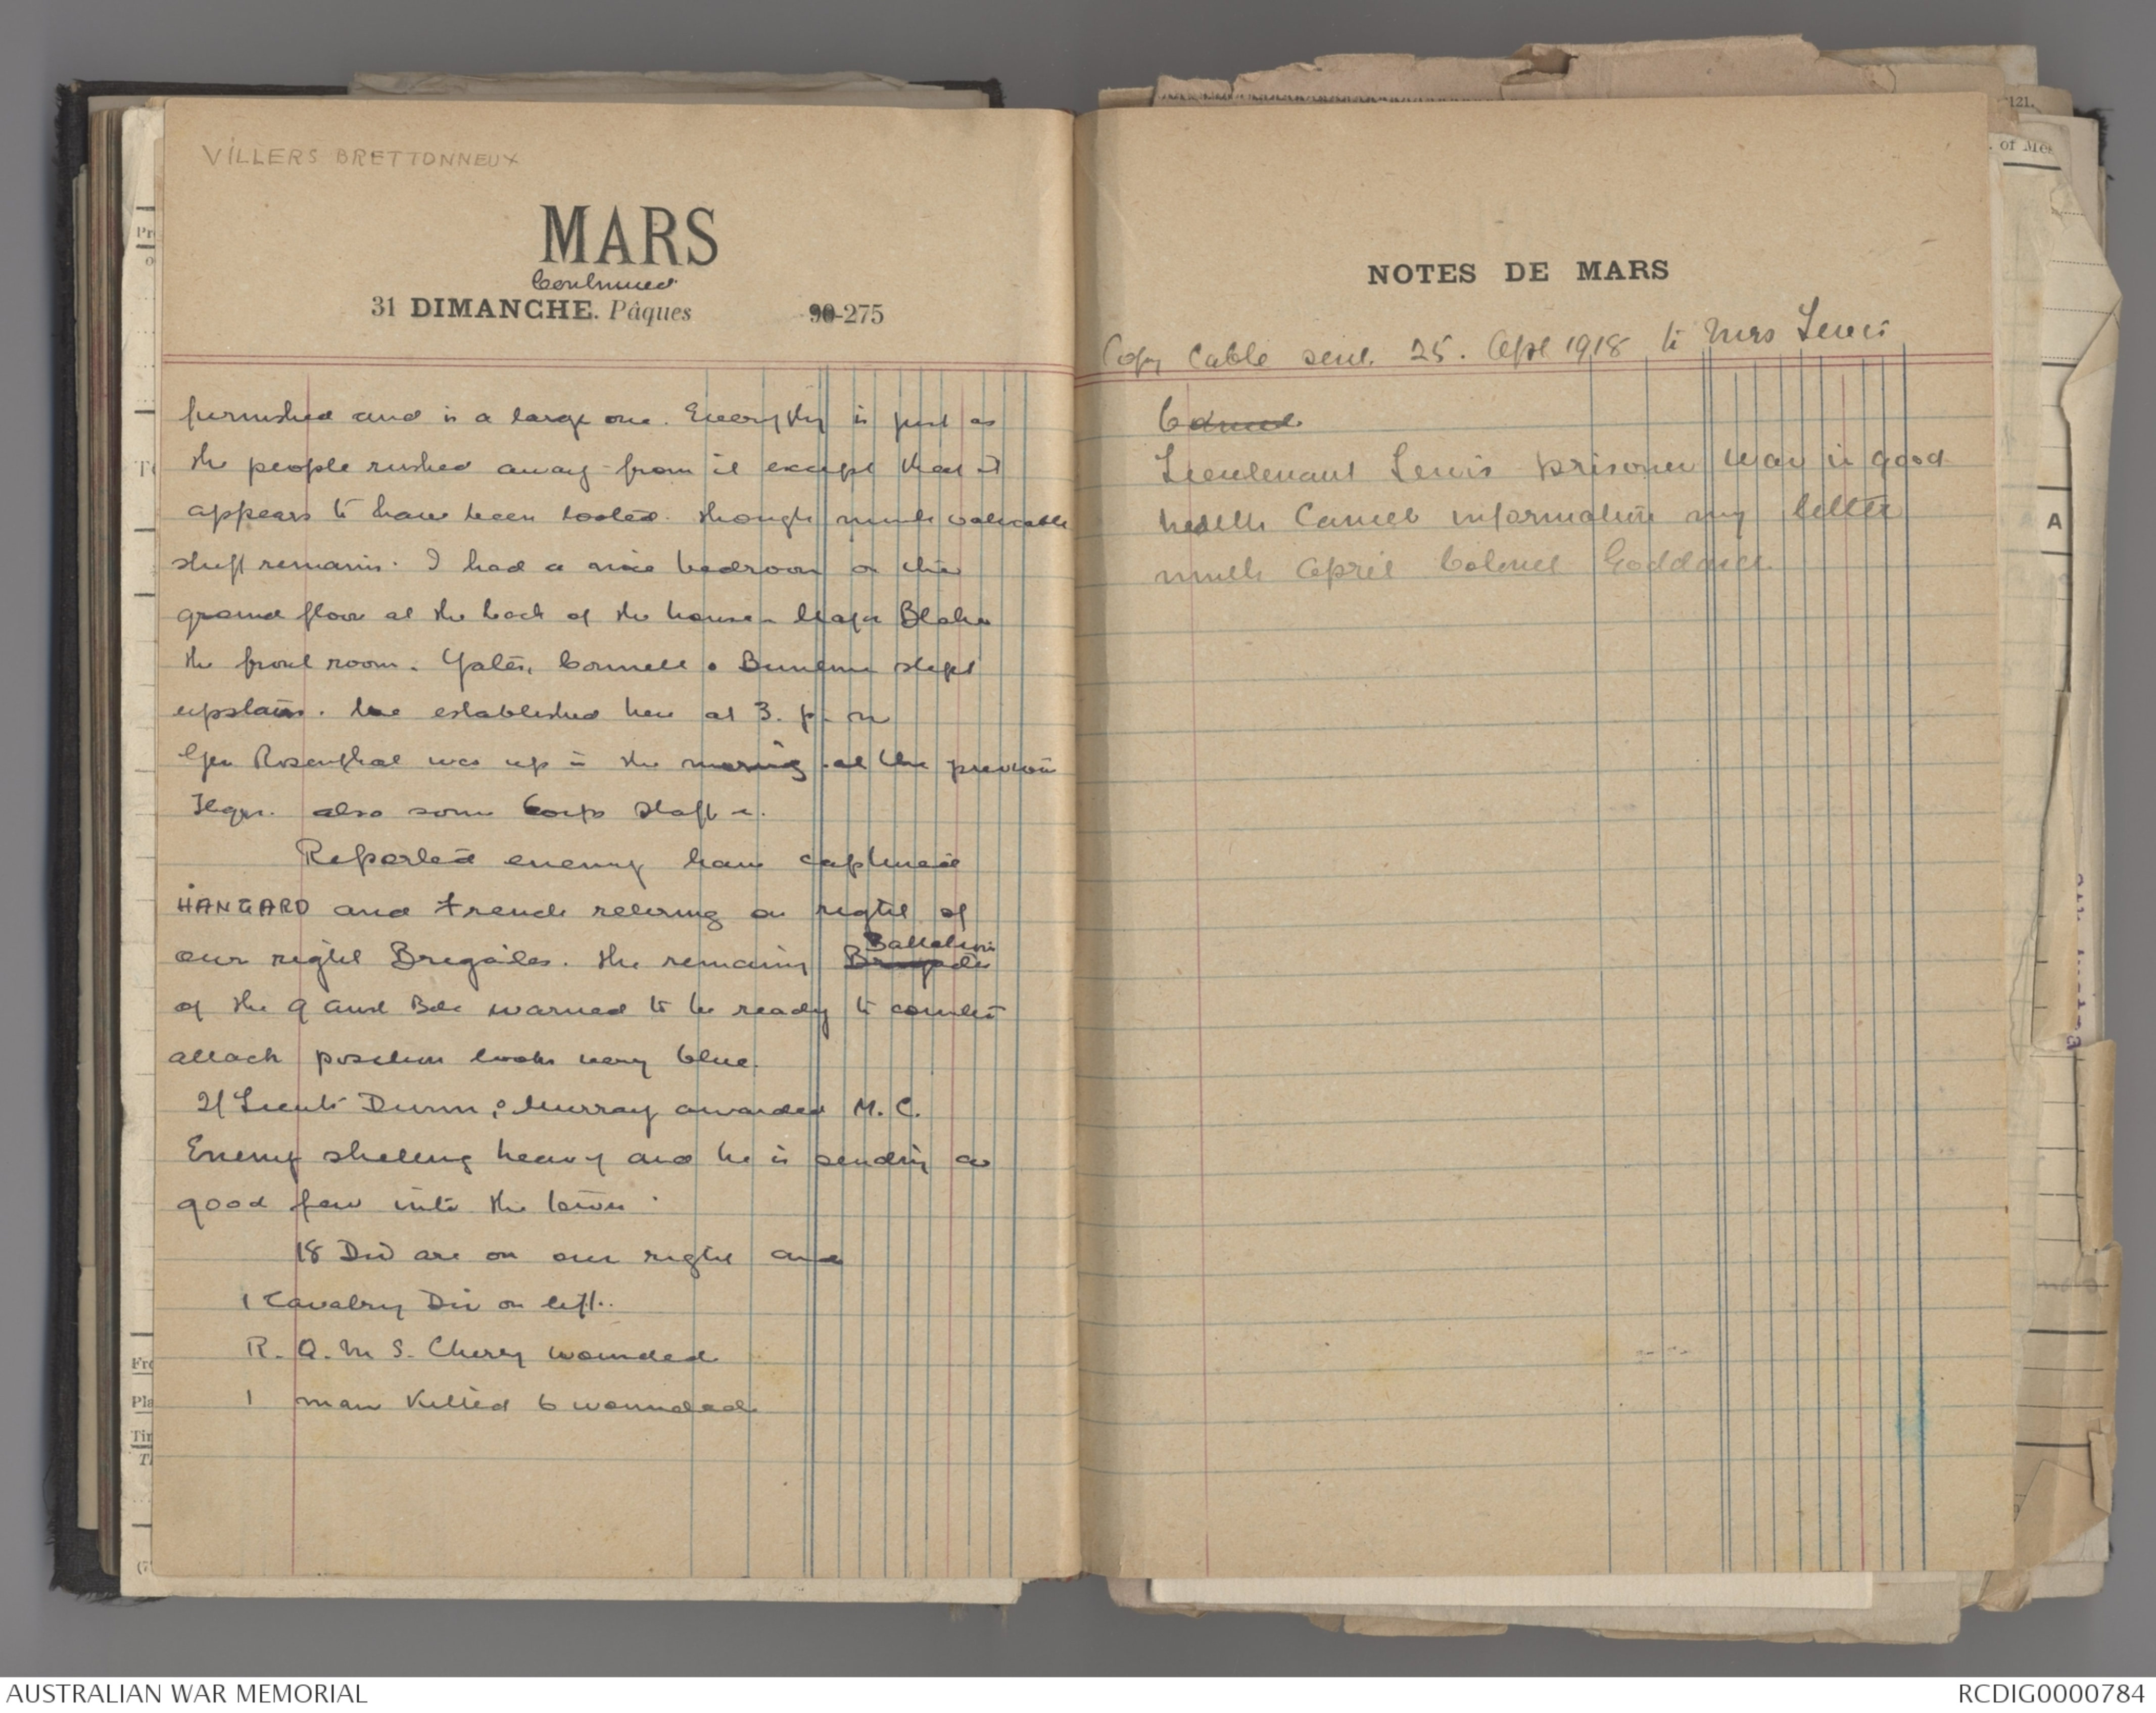 VILLERS BRETTONNEUX
MARS
Continued
31 DIMANCHE. Pâques 90-275
furnished and is a large one. Everythg is just as
the people rushed away from it except that it
appears to have been looted. though much valuable
stuff remains. I had a nice bedroom on the
ground floor at the back of the house - Major Blake
the front room. Yates, Connell & slept
upstairs. We established here at 3. p. m
Gen Rosenthal was up in the morning at the previous
Hqrs. also some Corps Staff
Reported enemy have captured
HANGARD and French retiring on right of
our right Brigades. the remaing Brigades Battalions
of the 9 Aust Bde warned to be ready to counter
attack position looks very blue.
2/Lieuts Dunn, & Murray awarded M. C.
Enemy shelleng heavy and he is sendin a
good few into the town.
18 Div are on our right and
1 Cavalry Div on left.
R. Q. M. S. Cherry wounded
1 man killed 6 wounded
NOTES DE MARS
Copy Cable sent. 25. Apl 1918 to Mrs Lewis
Lieutenant Lewis prisoner war in good
health Cancel information my letter
ninth April Colonel Goddard
121.
. of Mes
A
Pr
o
T
Fro
Pla
Tin
AUSTRALIAN WAR MEMORIAL
RCDIG0000784